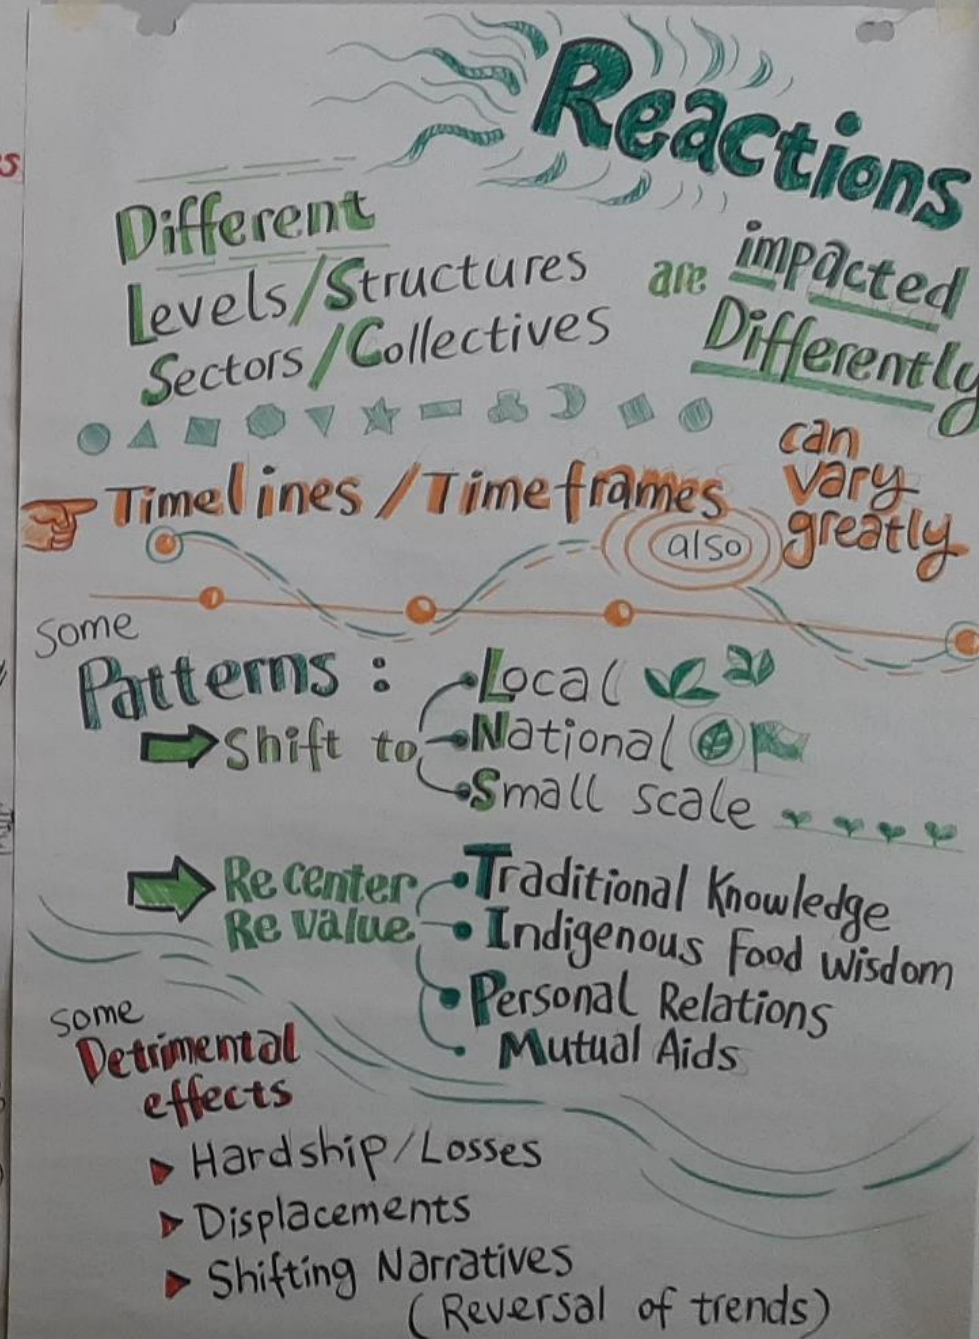 Reactions
Different
Levels/Structures
Sectors/Collectives
are impacted
Differently
Timelines/Timeframes
can
vary
greatly
also
some
Patterns:
Shift to
Local
National
Small scale
Recenter
Revalue
Traditional Knowledge
Indigenous Food Wisdom
Personal Relations
Mutual Aids
some
Detrimental
effects
Hardship/Losses
Displacements
Shifting Narratives
(Reversal of trends)